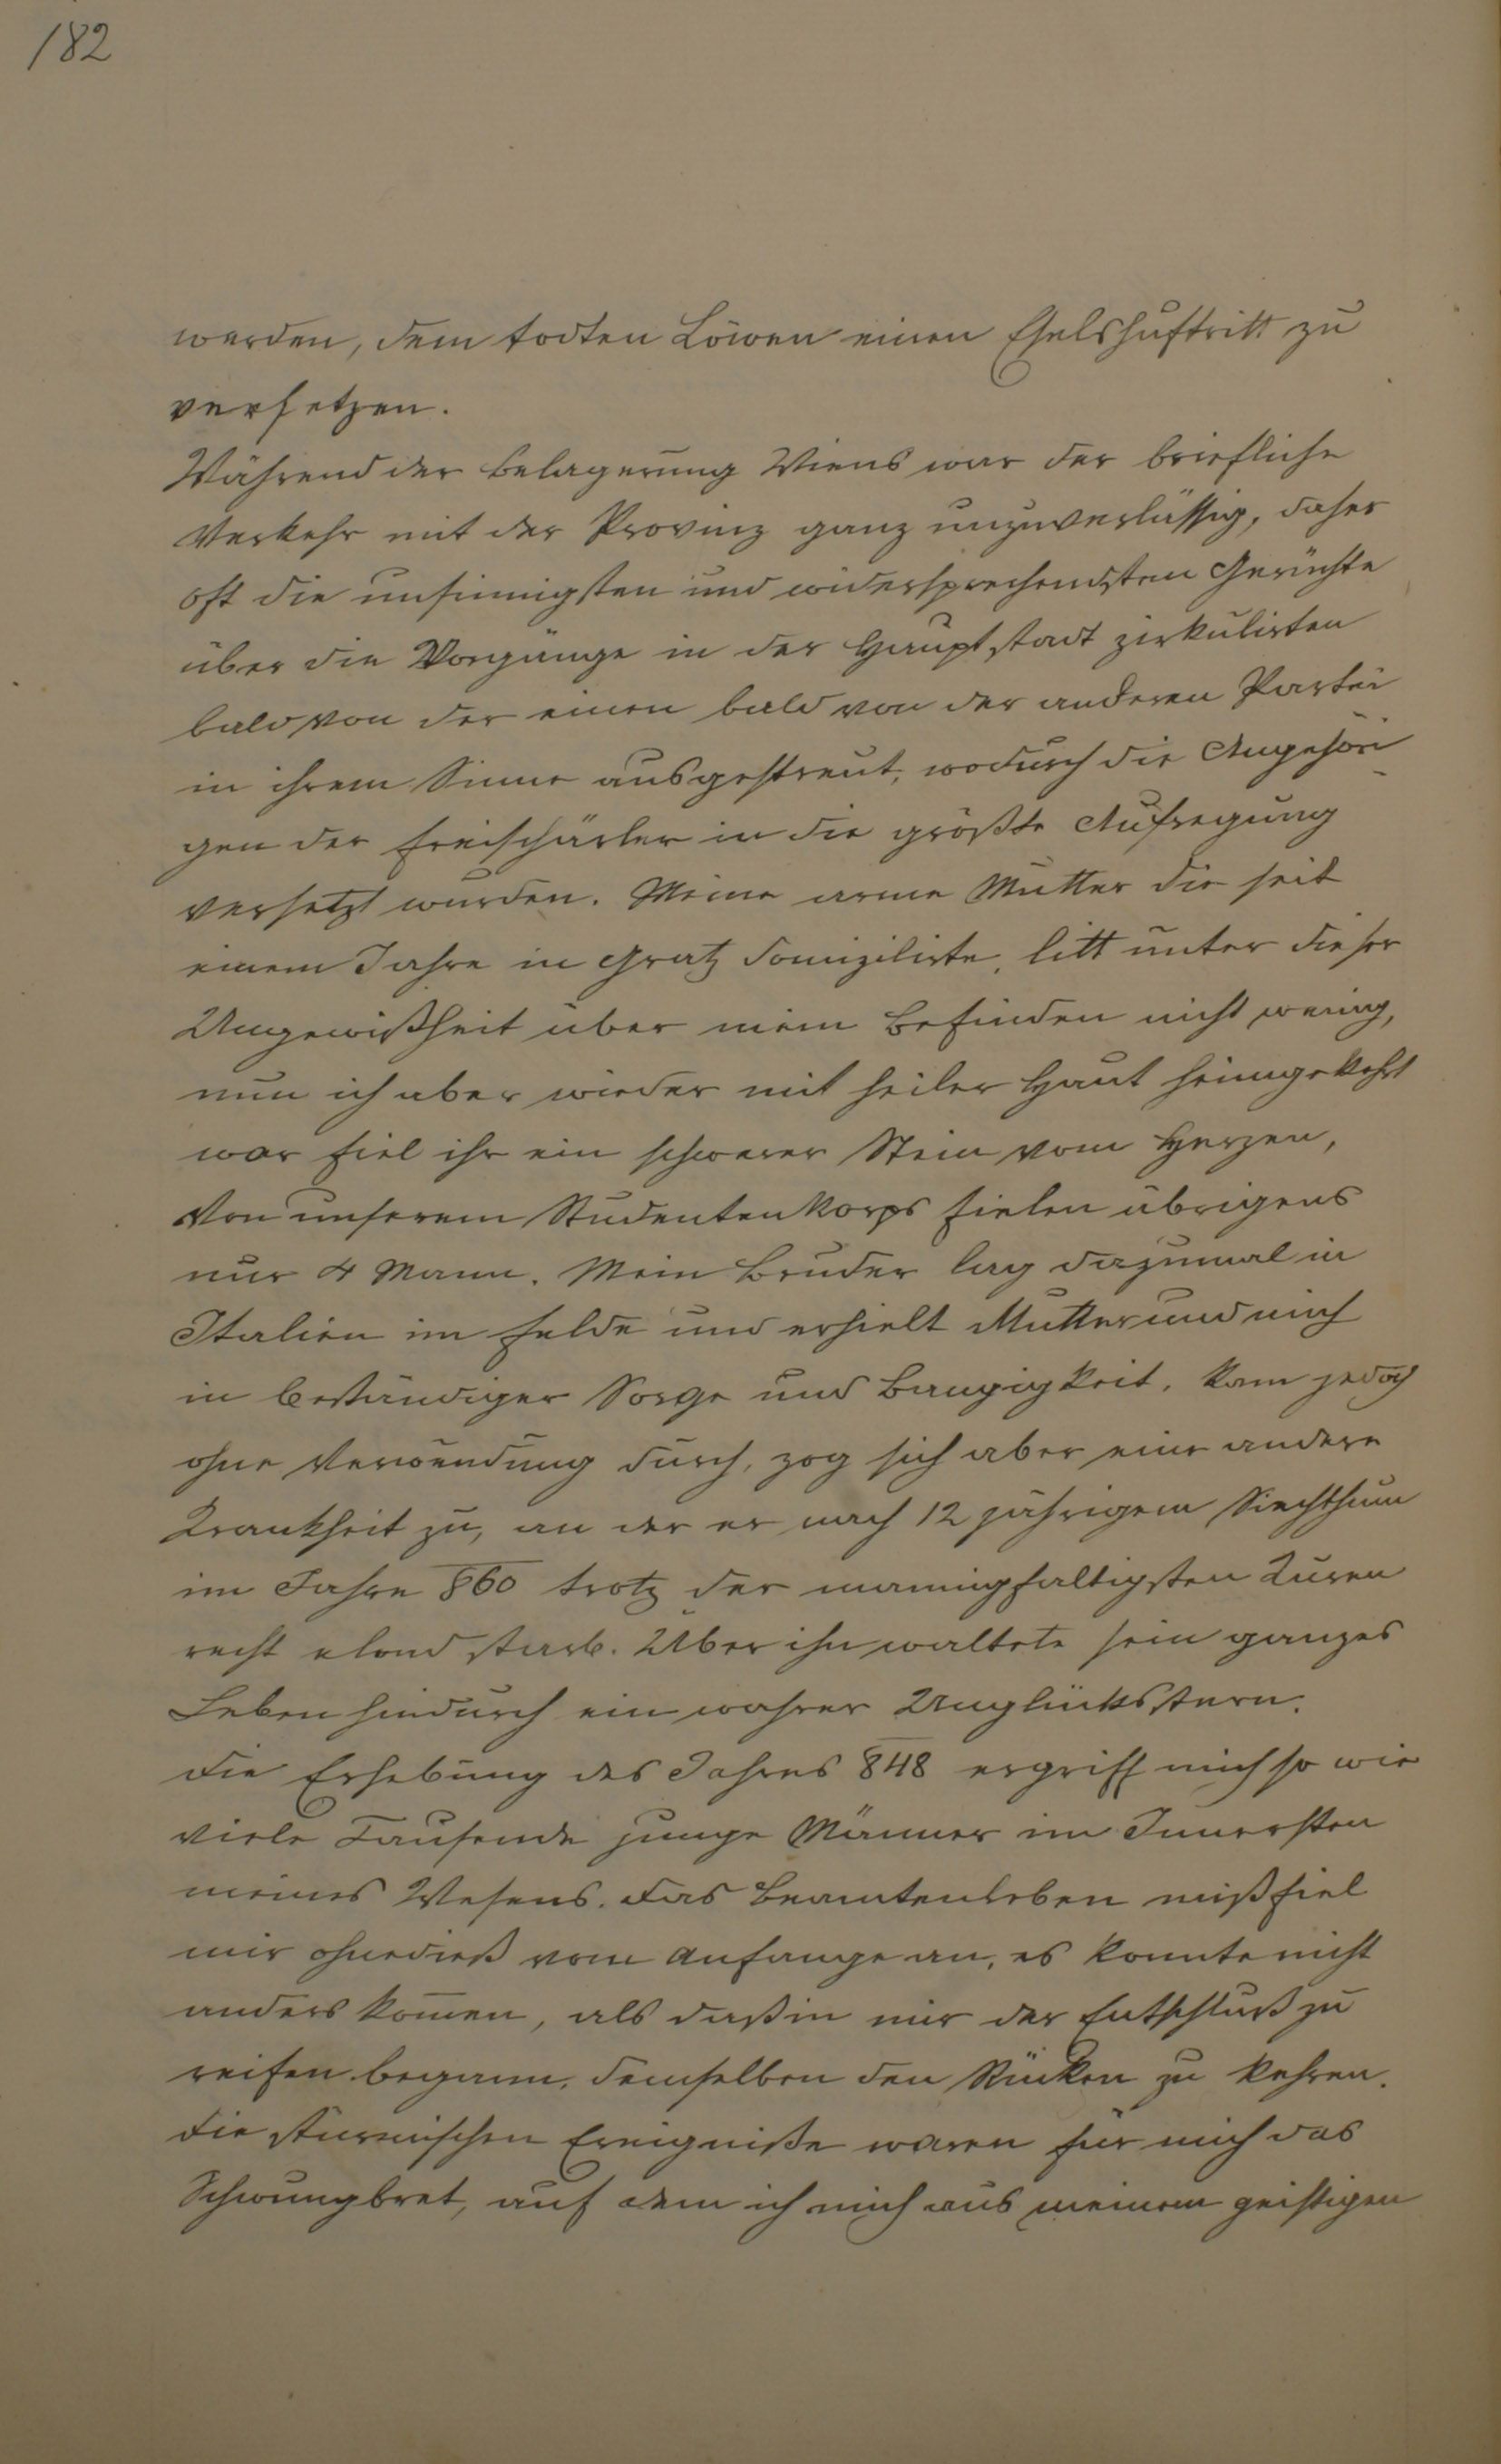 182
werden, dem todten Löwen einen Eselshuftritt zu
versetzen.
Während der Belagerung Wiens war der briefliche
Verkehr mit der Provinz ganz unzuverlässig, daher
oft die unsinnigsten und widersprechendsten Gerüchte
über die Vorgänge in der Hauptstadt zirkulirten
bald von der einen bald von der anderen Partei
in ihrem Sinne ausgestreut, wodurch die Angehöri-
gen der Freischärler in die größte Aufregung
versetzt wurden. Meine arme Mutter die seit
einem Jahre in Gratz domizilirte, litt unter dieser
Ungewißheit über mein Befinden nicht wenig,
nun ich aber wieder mit heiler Haut heimgekehrt
war fiel ihr ein schwerer Stein vom Herzen,
Von unserem Studentenkorps fielen übrigens
nur 4 Mann. Mein Bruder lag dazumal in
Italien im Felde und erhielt Mutter und mich
in beständiger Sorge und Bangigkeit, kam jedoch
ohne Verwundung durch, zog sich aber eine andere
Krankheit zu, an der er nach 12 jährigem Siechthum
im Jahre 860 trotz der mannigfaltigsten Kuren
recht elend starb. Über ihn waltete sein ganzes
Leben hindurch ein wahrer Unglücksstern.
Die Erhebung des Jahres 848 ergriff mich so wie
viele Tausende junge Männer im Innersten
meines Wesens. Das Beamtenleben mißfiel
mir ohnedieß vom Anfange an, es konnte nicht
anders kom̄en, als daß in mir der Entschluß zu
reifen begann, demselben den Rücken zu kehren.
Die stürmischen Ereigniße waren für mich das
Schwungbret, auf dem ich mich aus meinem geistigen